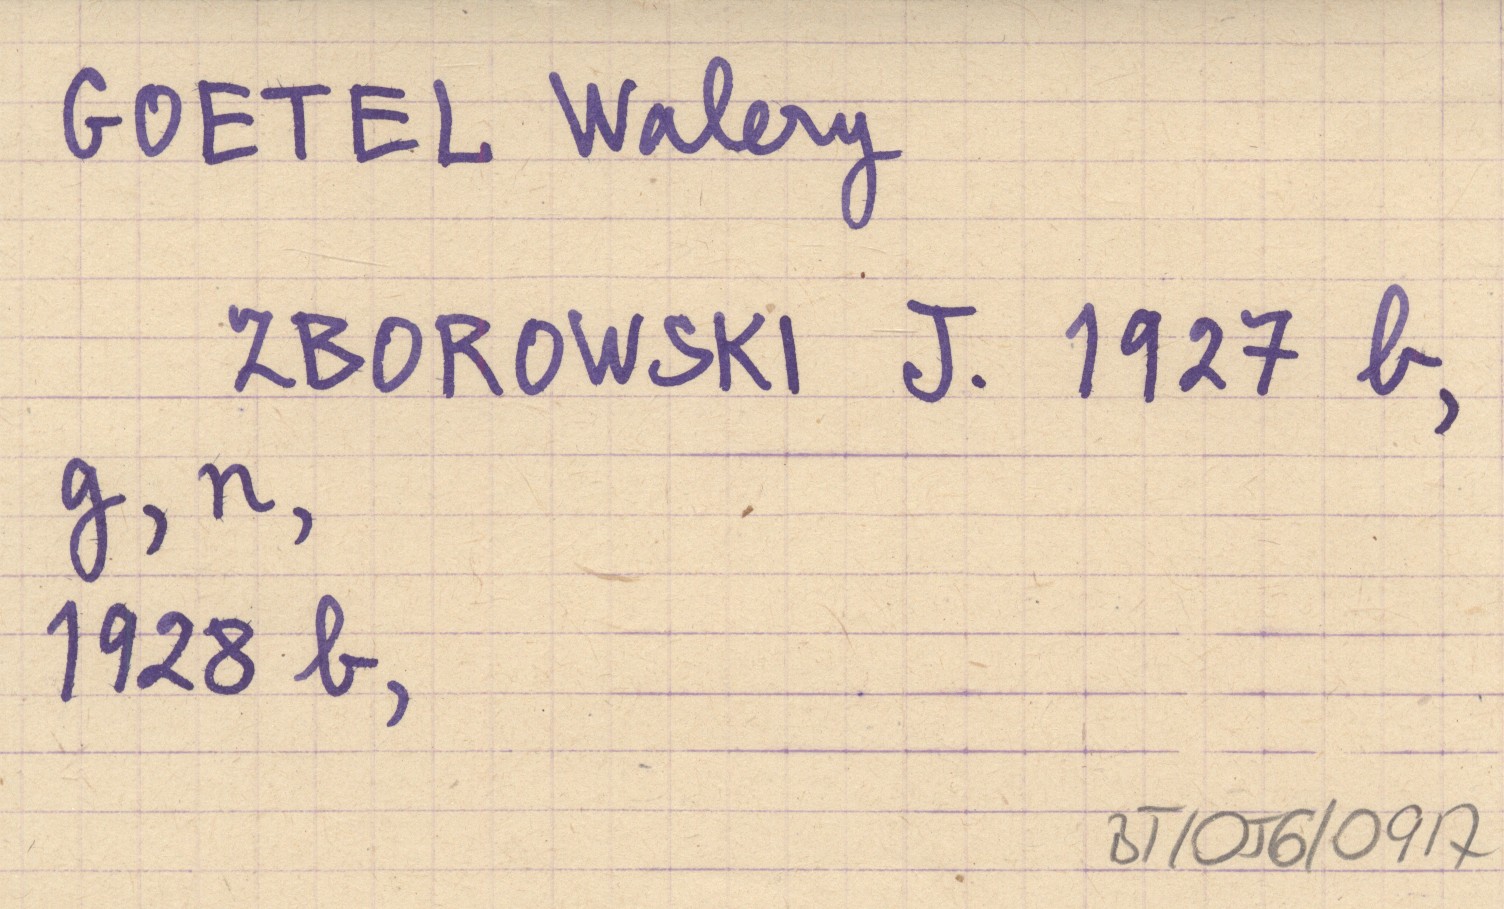 GOETEL Walery
ZBOROWSKI J. 1927 b,
g, n,
1928 b,
BT/OJG/0917